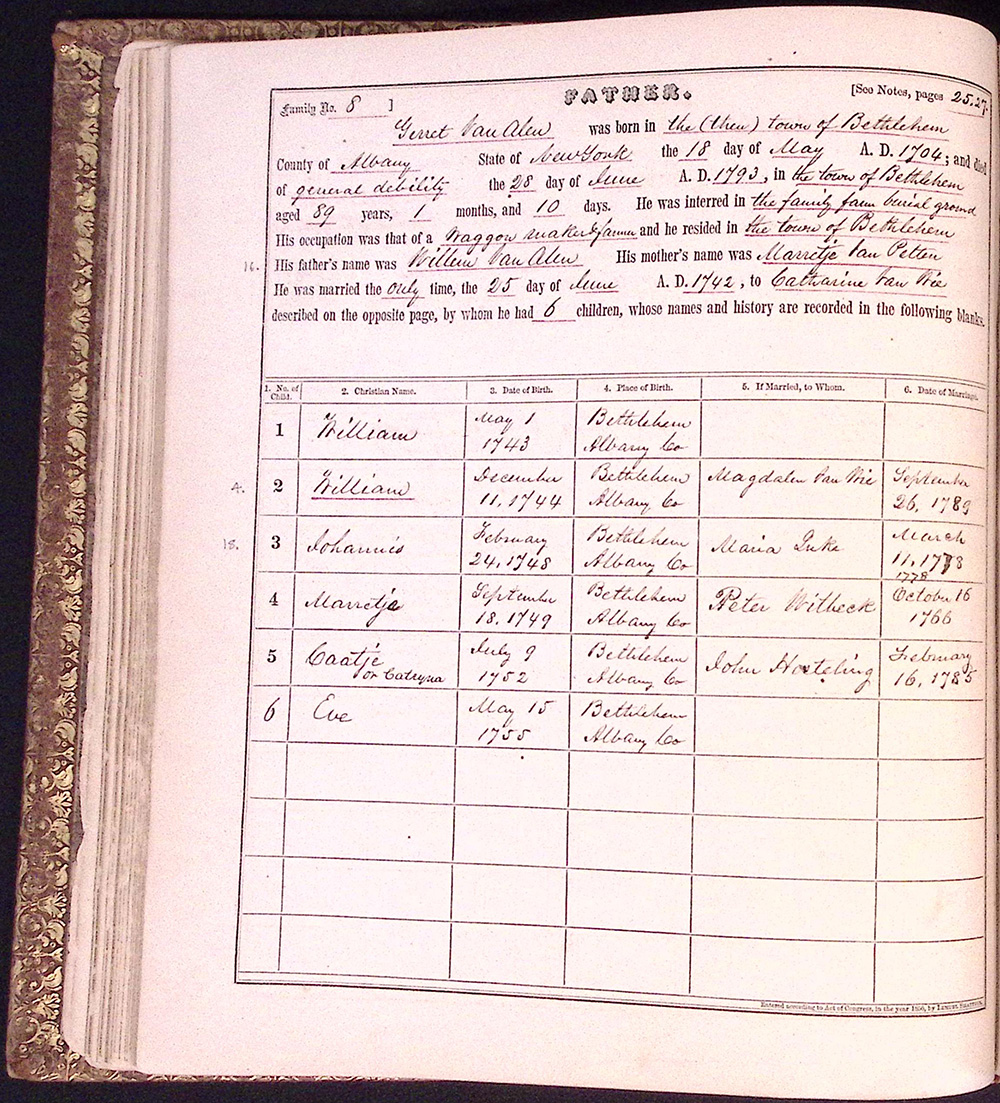 FATHER.
Family No. 8 ]
[See Notes, pages 25.27.
Gerret Van Alen was born in the (then) town of Bethlehem
County of Albany State of New York the 18 day of May A. D. 1704; and died
of general debility the 28 day of June A. D. 1793, in the town of Bethlehem
aged 89 years, 1 months, and 10 days. He was interred in the family farm burial ground
His occupation was that of a waggon maker & farmer and he resided in the town of Bethlehem
16. His father's name was Willem Van Alen His mother's name was Marretje Van Petten
He was married the only time, the 25 day of June A. D. 1742, to Catharine Van Wie
described on the opposite page, by whom he had 6 children, whose names and history are recorded in the following blanks.
1. No. of Child. 2. Christian Name. 3. Date of Birth. 4. Place of Birth. 5. If Married, to Whom. 6. Date of Marriage.
1 William May 1 1743 Bethlehem Albany Co
4. 2 William December 11, 1744 Bethlehem Albany Co Magdalen Van Wie September 26, 1789
18. 3 Johannis February 24, 1748 Bethlehem Albany Co Maria Luke March 11, 1778 1778
4 Marretje September 18, 1749 Bethlehem Albany Co Peter Witbeck October 16 1766
5 Caatje or Catryna July 9 1752 Bethlehem Albany Co John Hooteling February 16, 1785
6 Eve May 15 1755 Bethlehem Albany Co
Entered according to Act of Congress, in the year 1850, by Lemuel Shattuck.